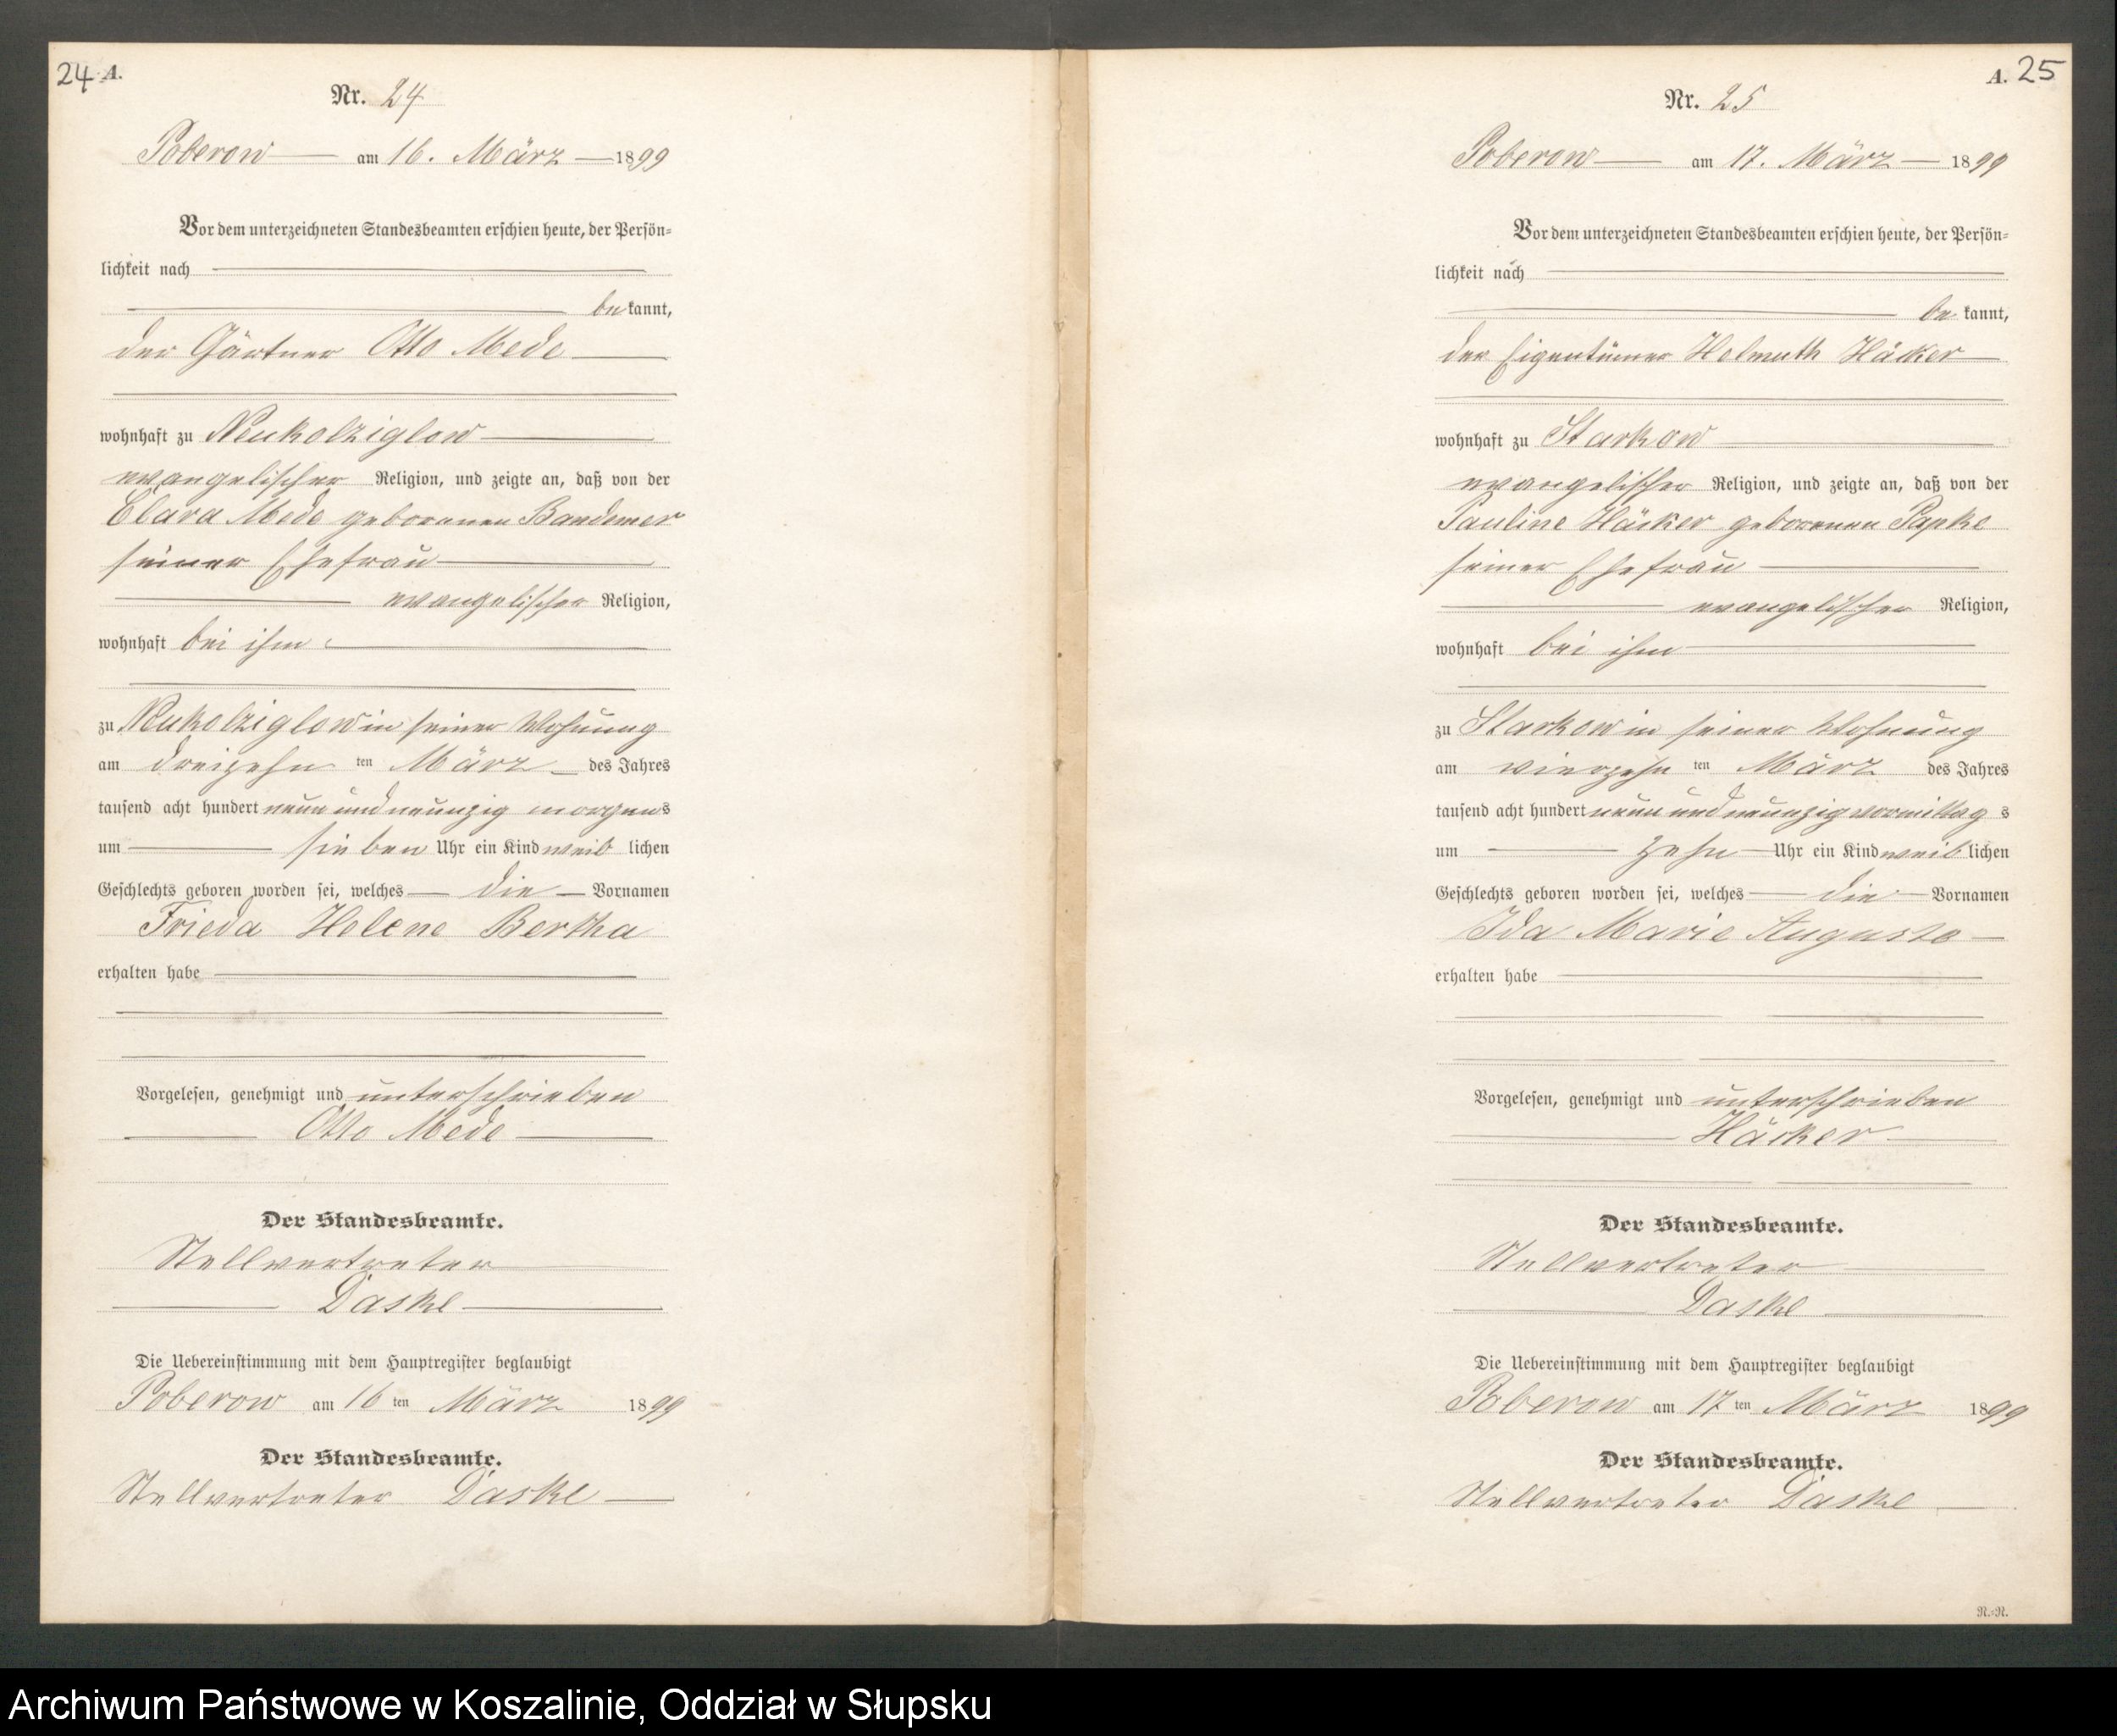 24 A.
Nr. 24
Poberow am 16. März 1899
Vor dem unterzeichneten Standesbeamten erschien heute, der Persön-
lichkeit nach
bekannt,
der Gärtner Otto Mede
wohnhaft zu Neukolziglow
evangelischer Religion, und zeigte an, daß von der
Clara Mede geborenen Bandemer
seiner Ehefrau
evangelischer Religion,
wohnhaft bei ihm
zu Neukolziglow in seiner Wohnung
am dreizehn ten März des Jahres
tausend acht hundert neun und neunzig morgens
um sieben Uhr ein Kind weiblichen
Geschlechts geboren worden sei, welches die Vornamen
Frieda Helene Bertha
erhalten habe
Vorgelesen, genehmigt und unterschrieben
Otto Mede
Der Standesbeamte.
Stellvertreter
Daske
Die Uebereinstimmung mit dem Hauptregister beglaubigt
Poberow am 16 ten März 1899
Der Standesbeamte.
Stellvertreter Daske
A. 25
Nr. 25
Poberow am 17. März 1899
Vor dem unterzeichneten Standesbeamten erschien heute, der Persön-
lichkeit nach
bekannt,
der Eigentümer Helmuth Häcker
wohnhaft zu Starkow
evangelischer Religion, und zeigte an, daß von der
Pauline Häcker geborenen Papke
seiner Ehefrau
evangelischer Religion,
wohnhaft bei ihm
zu Starkow in seiner Wohnung
am vierzehn ten März des Jahres
tausend acht hundert neun und neunzig vormittags
um zehn Uhr ein Kind weiblichen
Geschlechts geboren worden sei, welches die Vornamen
Ida Marie Auguste
erhalten habe
Vorgelesen, genehmigt und unterschrieben
Häcker
Der Standesbeamte.
Stellvertreter
Daske
Die Uebereinstimmung mit dem Hauptregister beglaubigt
Poberow am 17 ten März 1899
Der Standesbeamte.
Stellvertreter Daske
R.=R.
Archiwum Państwowe w Koszalinie, Oddział w Słupsku